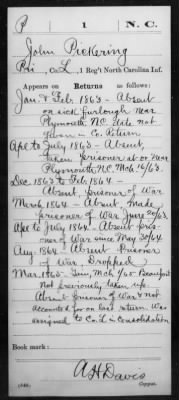 P 1 N.C.
John Pickering
Pvt, Co. L, 1 Reg't North Carolina Inf.
Appears on Returns as follows:
Jan. & Feb. 1863 - Absent
on sick furlough near
Plymouth N.C. date not
given in Co. Return
Apr. to July 1863 - Absent,
taken prisoner at or near
Plymouth N.C. Mch. 16/63.
Dec. 1863 to Feb. 1864 -
Absent, prisoner of War
March, 1864 - Absent, made
prisoner of War June 20/63.
Apr. to July, 1864 - Absent pris-
oner of War since May 30/64
Aug. 1864 - Absent Prisoner
of War, Dropped
Mar. 1865 - Mch 4/65 Beaufort
Not previously taken up.
Absent prisoner of War & not
accounted for on last return. Was
assigned to Co. L in Consolidation
Book mark:
A H Davis
Copyist.